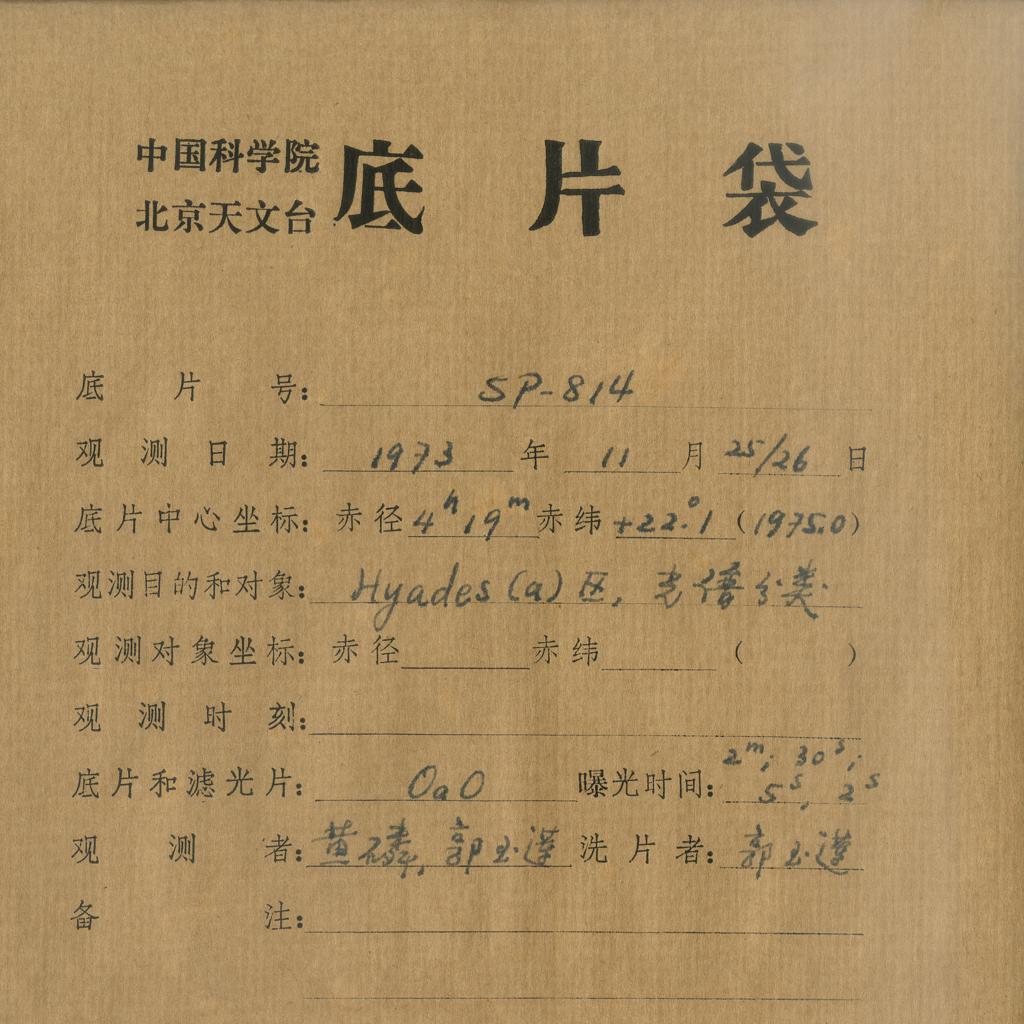 中国科学院
北京天文台
底片袋
底片号：SP-814
观测日期：1973年11月25/26日
底片中心坐标：赤径4ʰ19ᵐ赤纬+22.°1（1975.0）
观测目的和对象：Hyades(a)区，光谱分类.
观测对象坐标：赤径 赤纬 （ ）
观测时刻：
底片和滤光片：OaO 曝光时间：2ᵐ; 30ˢ;
5ˢ, 2ˢ
观测者：黄磷，郭玉莲 洗片者：郭玉莲
备注：